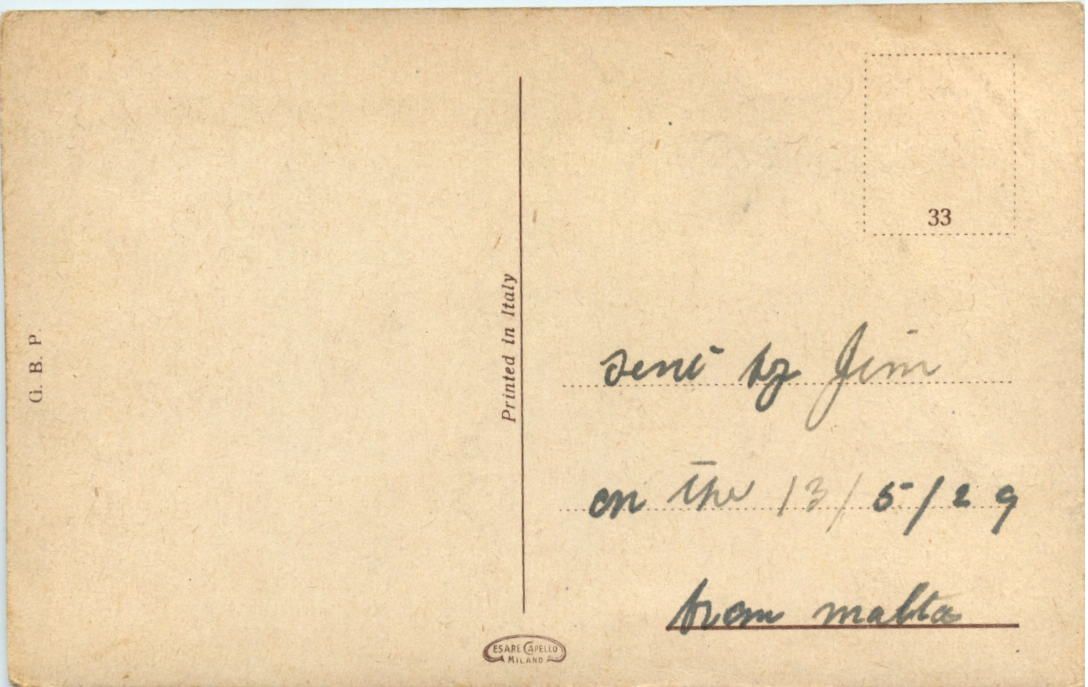 33
G. B. P.
Printed in Italy
sent by Jim
on the 13/5/29
from malta
CESARE CAPELLO
MILANO